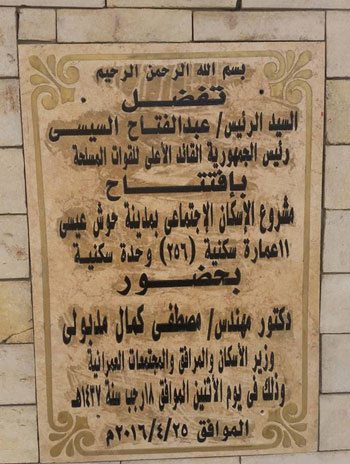 بسم الله الرحمن الرحيم
تفضل
السيد الرئيس/ عبدالفتاح السيسى
رئيس الجمهورية القائد الأعلى للقوات المسلحة
بإفتتاح
مشروع الإسكان الإجتماعى بمدينة حوش عيسى
١١عمارة سكنية (٢٥٦) وحدة سكنية
بحضور
دكتور مهندس/ مصطفى كمال مدبولى
وزير الأسكان والمرافق والمجتمعات العمرانية
وذلك فى يوم الأثنين الموافق ١٨رجب سنة ١٤٣٧هـ
الموافق ٢٠١٦/٤/٢٥م